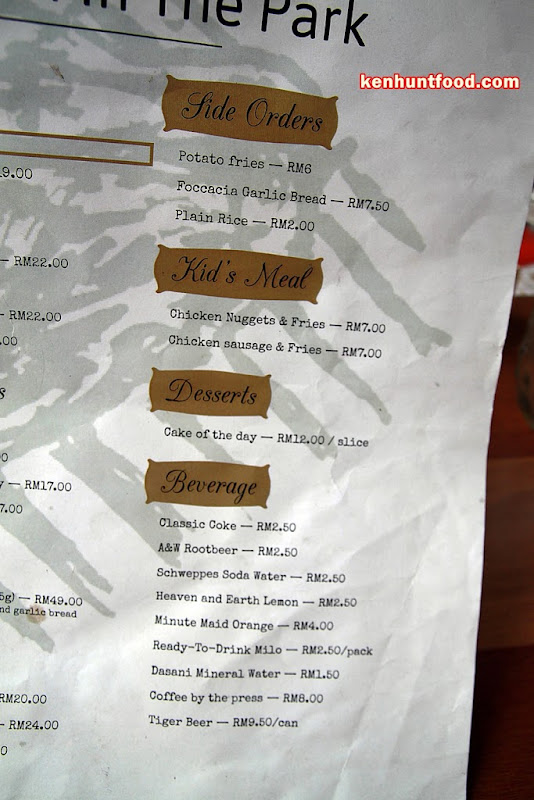 The Park
kenhuntfood.com
Side Orders
Potato fries — RM6
Foccacia Garlic Bread — RM7.50
Plain Rice — RM2.00
Kid's Meal
Chicken Nuggets & Fries — RM7.00
Chicken sausage & Fries — RM7.00
Desserts
Cake of the day — RM12.00 / slice
Beverage
Classic Coke — RM2.50
A&W Rootbeer — RM2.50
Schweppes Soda Water — RM2.50
Heaven and Earth Lemon — RM2.50
Minute Maid Orange — RM4.00
Ready-To-Drink Milo — RM2.50/pack
Dasani Mineral Water — RM1.50
Coffee by the press — RM8.00
Tiger Beer — RM9.50/can
9.00
— RM22.00
— RM22.00
— RM17.00
7.00
5g) — RM49.00
garlic bread
RM20.00
— RM24.00